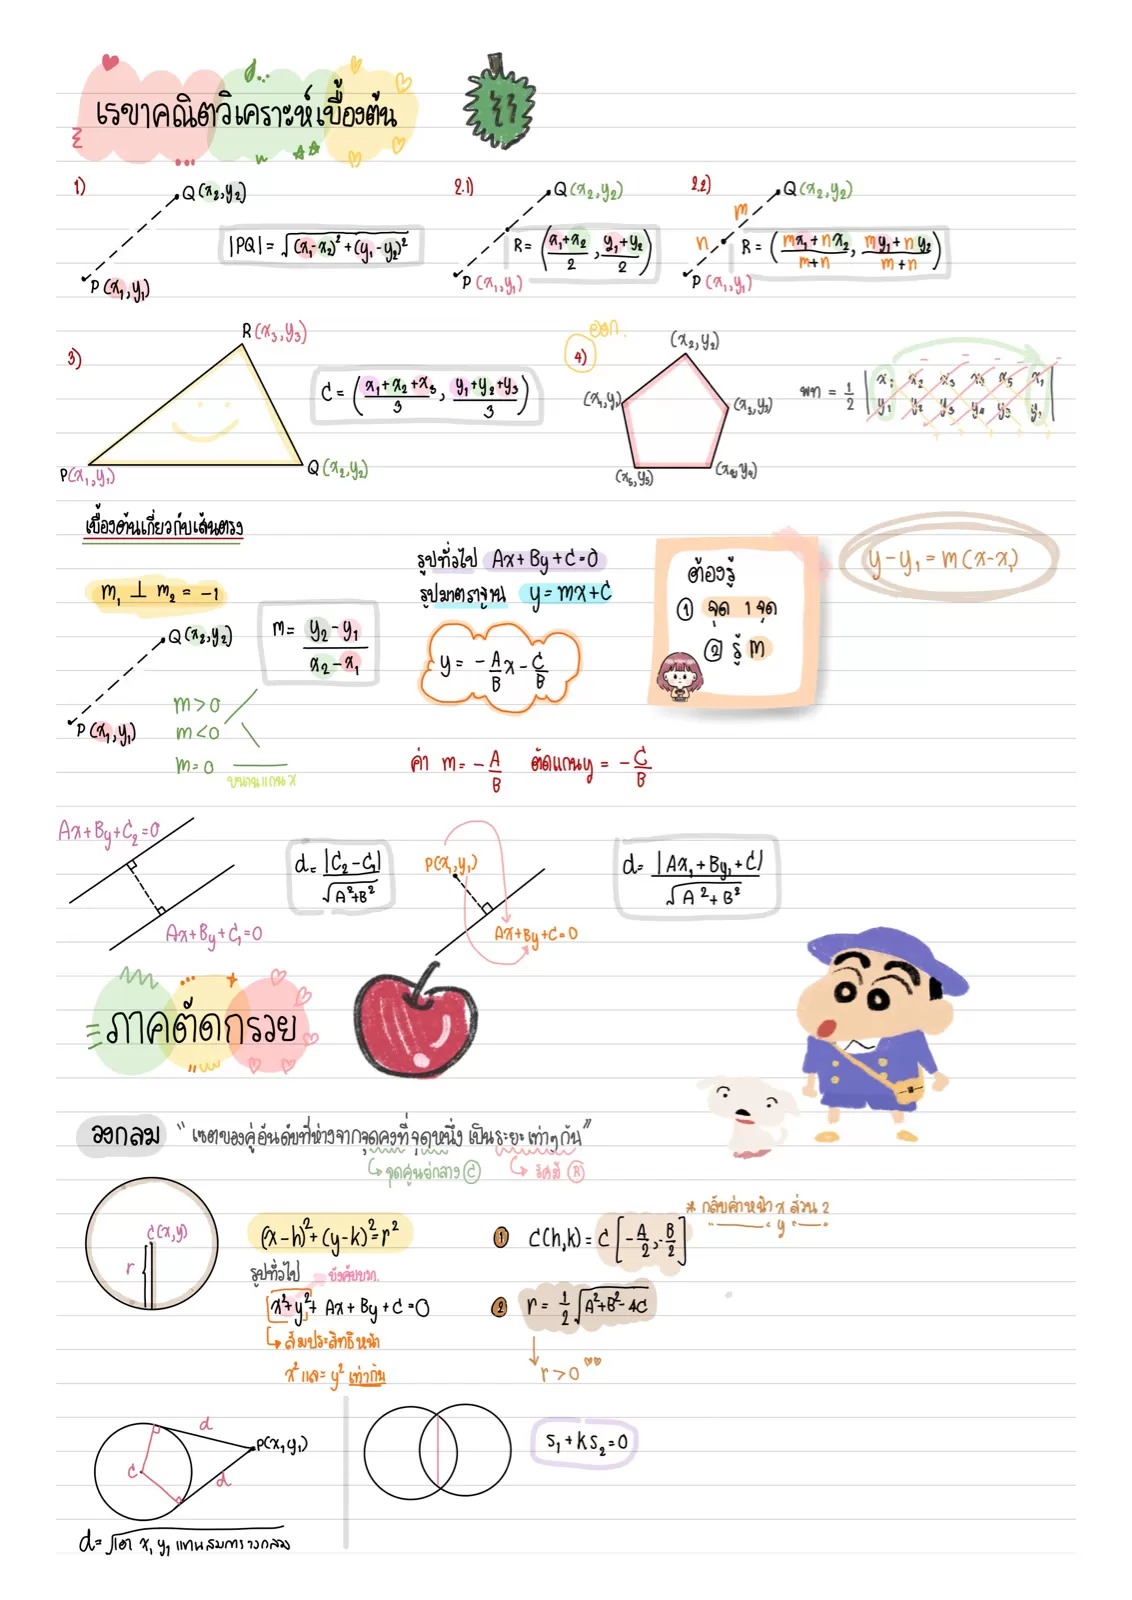 เรขาคณิตวิเคราะห์เบื้องต้น
1)
Q(x₂,y₂)
|PQ| = √(x₁-x₂)²+(y₁-y₂)²
P(x₁,y₁)
2.1)
Q(x₂,y₂)
R = (x₁+x₂/2, y₁+y₂/2)
P(x₁,y₁)
2.2)
Q(x₂,y₂)
m
n
R = (mx₁+nx₂/m+n, my₁+ny₂/m+n)
P(x₁,y₁)
3)
R(x₃,y₃)
C = (x₁+x₂+x₃/3, y₁+y₂+y₃/3)
P(x₁,y₁)
Q(x₂,y₂)
4)
(x₂,y₂)
(x₁,y₁)
(x₃,y₃)
(x₅,y₅)
(x₄,y₄)
พท = 1/2
x₁ x₂ x₃ x₄ x₅ x₁
y₁ y₂ y₃ y₄ y₅ y₁
เบื้องต้นเกี่ยวกับเส้นตรง
m₁ ⊥ m₂ = -1
Q(x₂,y₂)
P(x₁,y₁)
m = y₂-y₁/x₂-x₁
m>0
m<0
m=0
ขนานแกน x
รูปทั่วไป Ax+By+C=0
รูปมาตราฐาน y=mx+C
y = -A/B x - C/B
ค่า m = -A/B ตัดแกน y = -C/B
ต้องรู้
① จุด 1 จุด
② รู้ m
y-y₁ = m(x-x₁)
Ax+By+C₂=0
Ax+By+C₁=0
d = |C₂-C₁|/√A²+B²
P(x₁,y₁)
Ax+By+C=0
d = |Ax₁+By₁+C|/√A²+B²
ภาคตัดกรวย
วงกลม "เซตของคู่อันดับที่ห่างจากจุดคงที่จุดหนึ่ง เป็นระยะเท่าๆกัน"
จุดศูนย์กลาง C
รัศมี R
C(x,y)
r
(x-h)²+(y-k)²=r²
รูปทั่วไป บังคับบวก.
x²+y²+Ax+By+C=0
สัมประสิทธิ์หน้า
x² และ y² เท่ากัน
* กลับค่าหน้า x ส่วน 2
y
① C(h,k) = C[-A/2, -B/2]
② r = 1/2 √A²+B²-4C
r>0
d
P(x₁,y₁)
C
d
d = √เอา x₁ y₁ แทนสมการวงกลม
S₁+KS₂=0